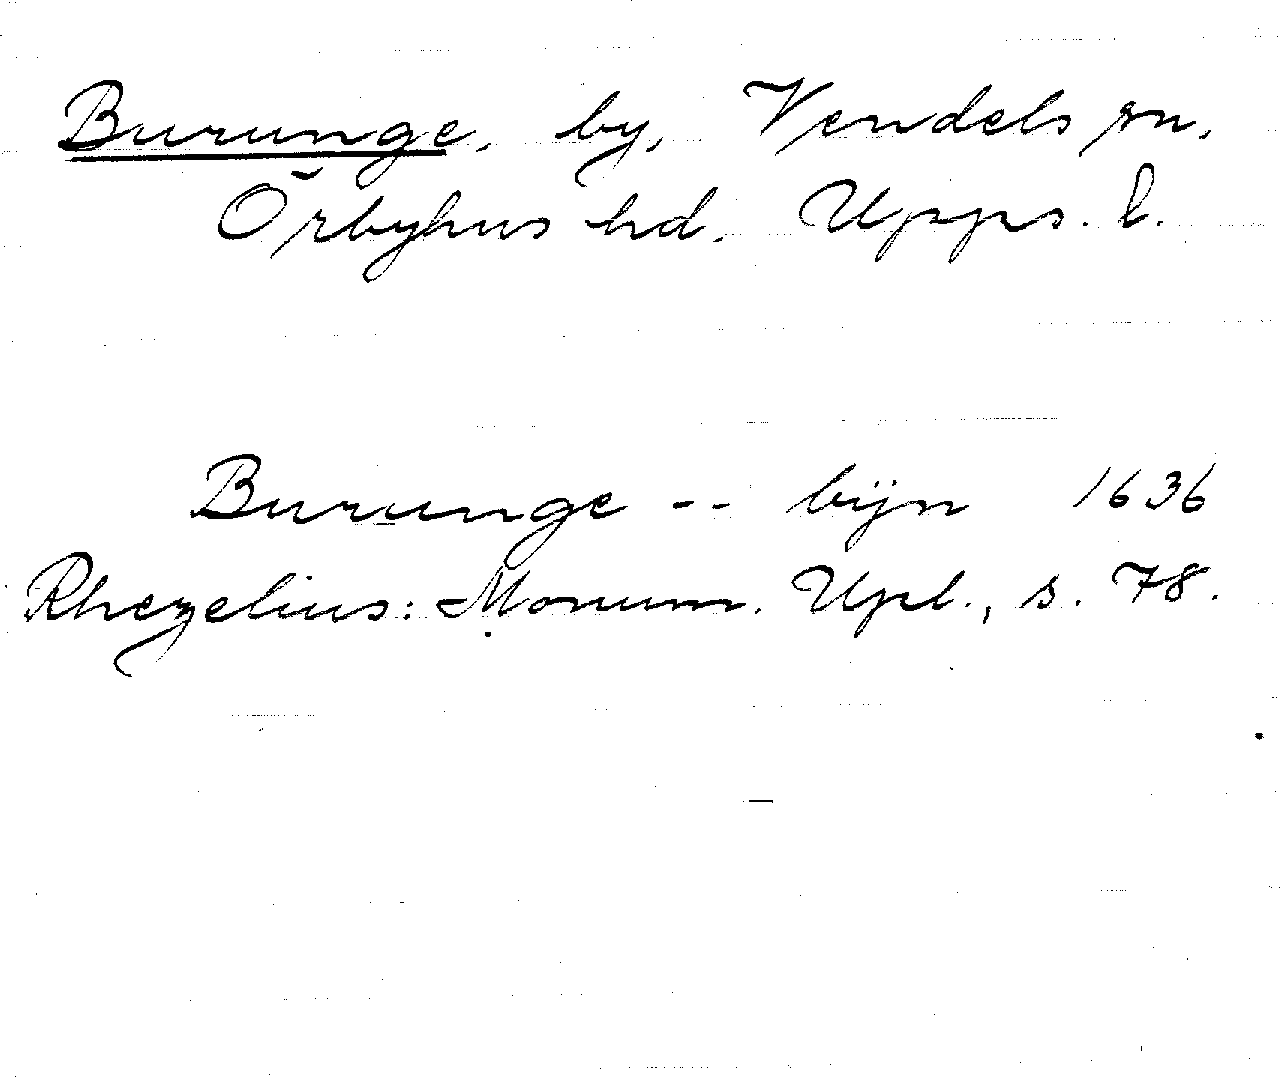 Burunge, by, Vendels sn,
Örbyhus hd. Upps. l.
Burunge -- bÿn 1636
Rhezelius: Monum. Upl., s. 78.